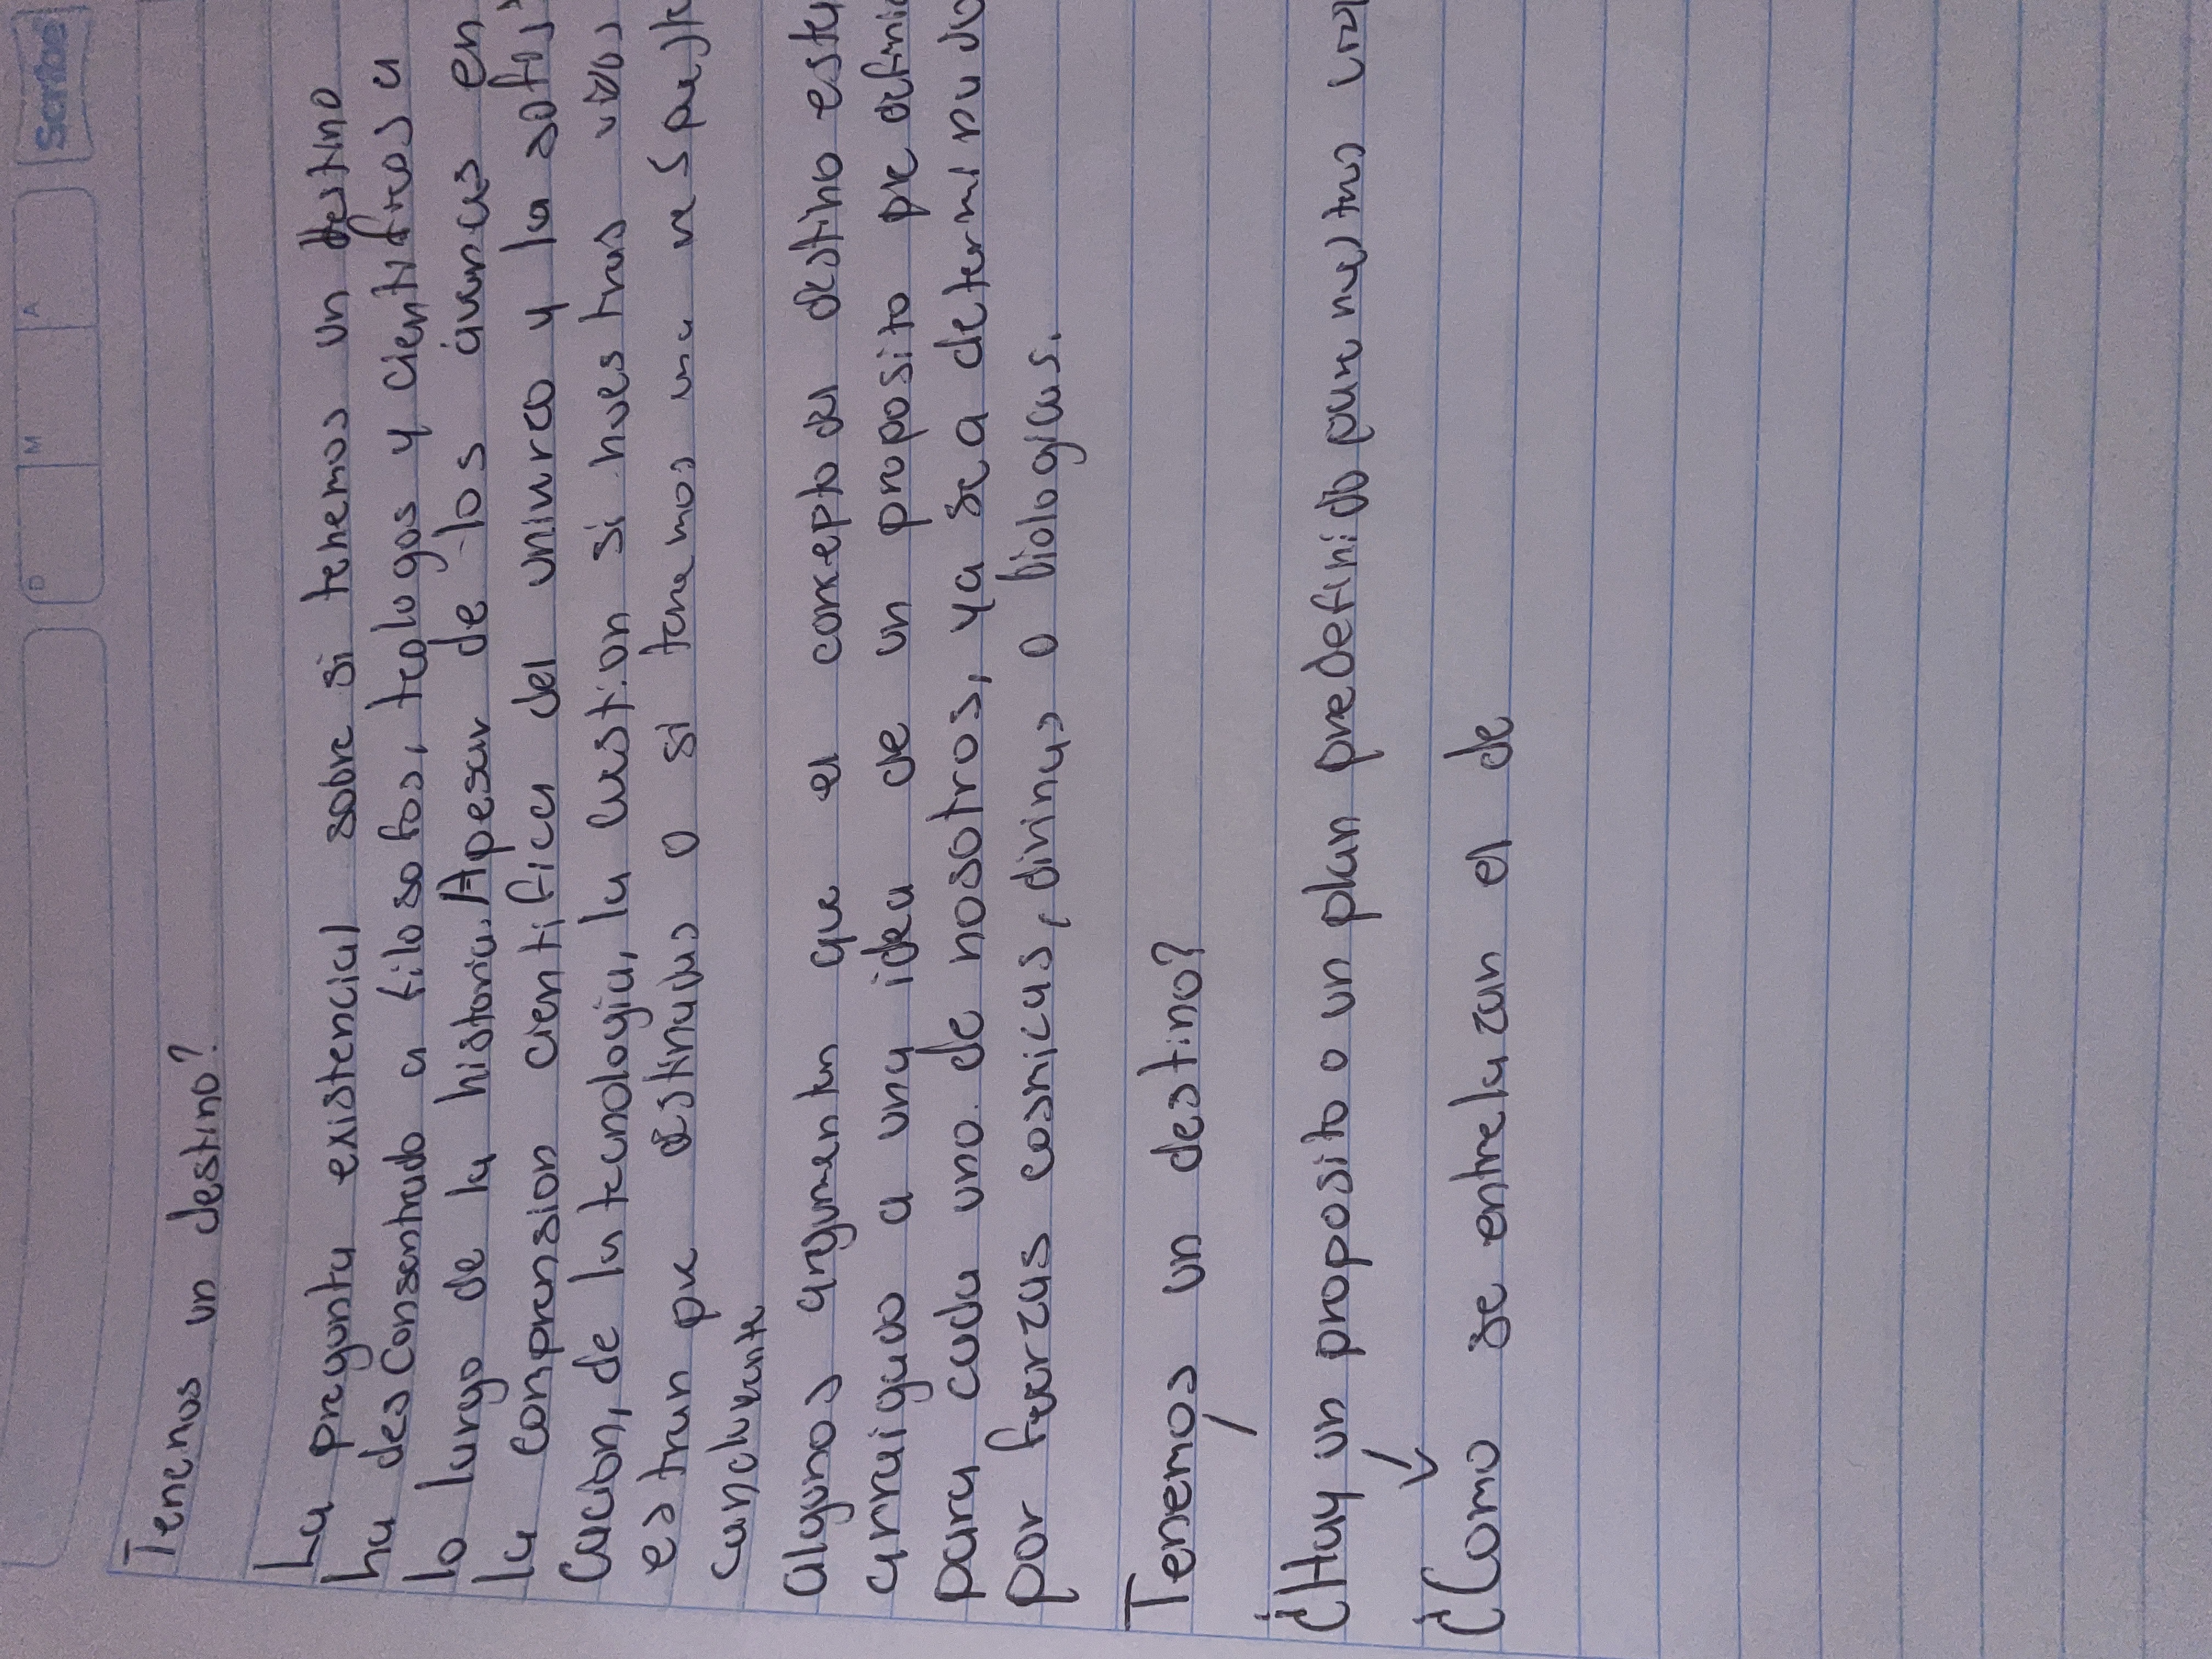 Scribe
D M A
Tenemos un destino?
La pregunta existencial sobre si tenemos un destino
ha desconsentrado a filosofos, teologos y cientificos a
lo largo de la historia. Apesar de los avances en
la conpransion cientifica del universo y la sofis
cacion, de la tecnologia, la custion si nuestras vidas
estran pre destinadas o si tenemos una respuesta
concluyente
algunos argumentan que el concepto del destino esta
arraigado a una idea de un proposito pre defini
para cada uno de nosotros, ya sea determinado
por fuerzas cosmicas, divinas o biologicas.
Tenemos un destino?
¿Hay un proposito o un plan predefinido para nuestras
¿Como se entrelazan el de